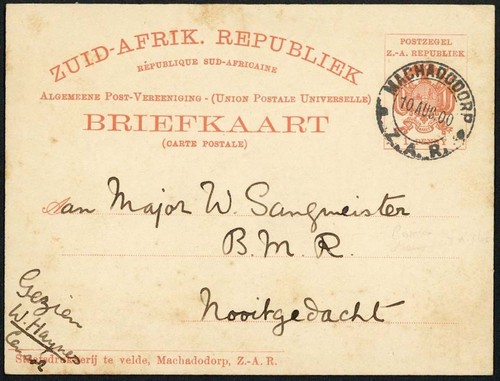 ZUID-AFRIK. REPUBLIEK
RÉPUBLIQUE SUD-AFRICAINE
ALGEMEENE POST-VEREENIGING - (UNION POSTALE UNIVERSELLE)
BRIEFKAART
(CARTE POSTALE)
POSTZEGEL
Z.-A. REPUBLIEK
MACHADODORP
10 AUG 00
Z.A.R.
Aan Major W. Sangmeister
B.M.R.
Nooitgedacht
Gezien
W. Haynes
Staatsdrukkerij te velde, Machadodorp, Z.-A.R.